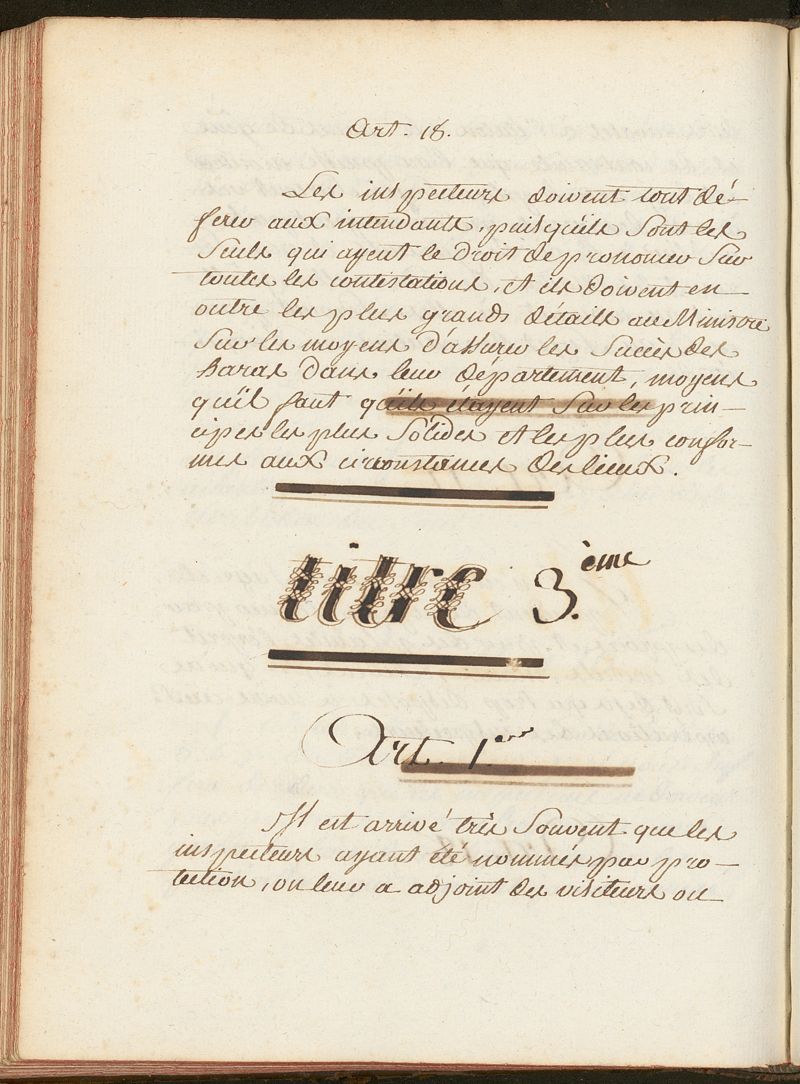 Art. 18.
Les inspecteurs doivent tout dé-
ferer aux intendants, puisqu'ils sont les
seuls qui ayent le droit de prononcer sur
toutes les contestations, et ils doivent en
outre les plus grands détails au Ministre
sur les moyens d'assurer les succès des
haras dans leur département, moyens
qu'il faut qu'ils étayent sur les prin-
cipes les plus solides et les plus confor-
mes aux circonstances des lieux.
titre 3.ème
Art. 1.er
Il est arrivé très souvent que les
inspecteurs ayant été nommés par pro-
tection, on leur a adjoint des visiteurs ou